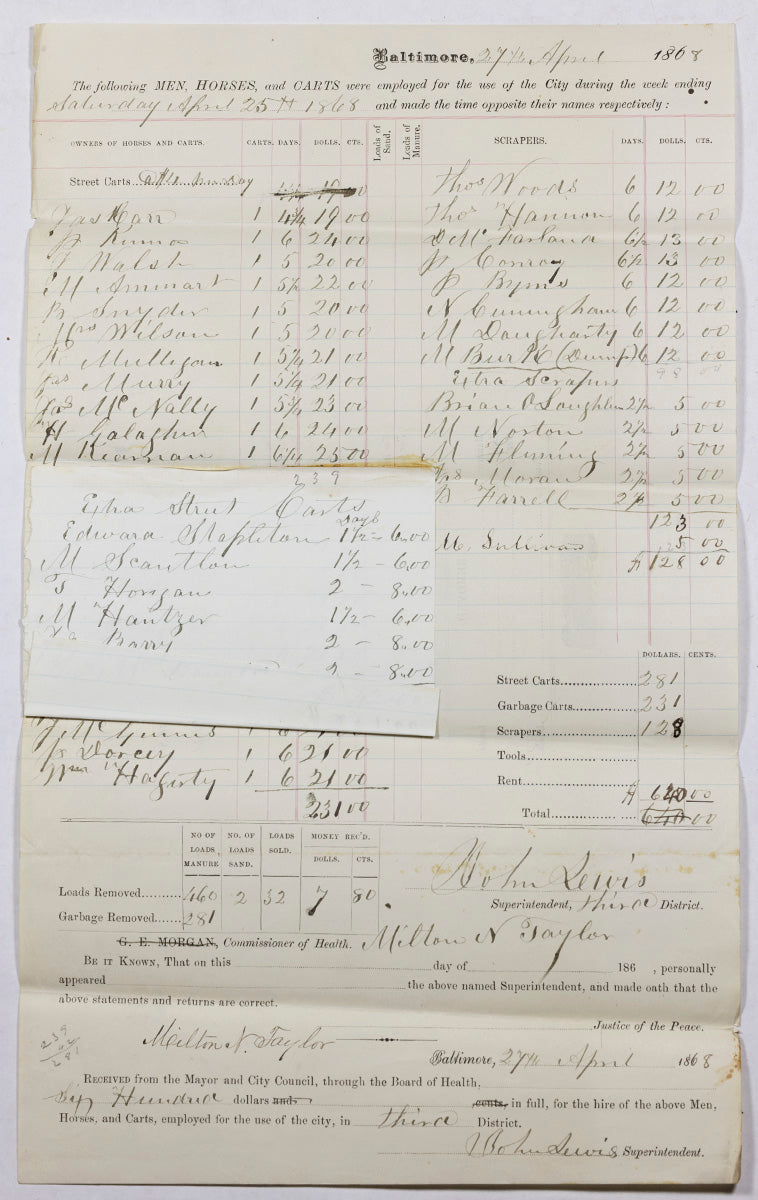 Baltimore, 27th April 1868
The following MEN, HORSES, and CARTS were employed for the use of the City during the week ending
Saturday April 25th 1868 and made the time opposite their names respectively:
OWNERS OF HORSES AND CARTS. CARTS. DAYS. DOLLS. CTS. Loads of Sand. Loads of Manure.
Street Carts
Jas Carr 1 4¾ 19 00
1 6 24 00
Walsh 1 5 20 00
M Ammart 1 5½ 22 00
Snyder 1 5 20 00
Mrs Wilson 1 5 20 00
Mulligan 1 5¼ 21 00
Jas Murry 1 5¼ 21 00
Jas McNally 1 5¾ 23 00
H Galagher 1 6 24 00
M Kiarnan 1 6¼ 25 00
239
Extra Street Carts
Days
Edward Stapleton 1½ - 6.00
M Scantlon 1½ - 6.00
T Horigan 2 - 8.00
M Hantzer 1½ - 6.00
Barry 2 - 8.00
2 - 8.00
J McGinnis 1 6 21 00
Jo Dorcey 1 6 21 00
Hagirty 1 6 21 00
231 00
SCRAPERS. DAYS. DOLLS. CTS.
Thos Woods 6 12 00
Thos Hannon 6 12 00
D McFarland 6½ 13 00
P Conroy 6½ 13 00
P Byrns 6 12 00
N Cunningham 6 12 00
M Daugharty 6 12 00
M Burk (Dump) 6 12 00
98 00
Extra Scrapers
Brian O'Loughlin 2½ 5 00
M Norton 2½ 5 00
M Fleming 2½ 5 00
Moran 2½ 5 00
Farrell 2½ 5 00
123 00
M. Sullivan 5 00
$ 128 00
DOLLARS. CENTS.
Street Carts 281
Garbage Carts 231
Scrapers 128
Tools
Rent
$ 640 00
Total 640 00
NO OF LOADS MANURE NO. OF LOADS SAND. LOADS SOLD. MONEY REC'D. DOLLS. CTS.
Loads Removed 460 2 32 7 80
Garbage Removed 281
John Lewis
Superintendent, third District.
G. E. MORGAN, Commissioner of Health. Milton N Taylor
BE IT KNOWN, That on this day of 186 , personally
appeared the above named Superintendent, and made oath that the
above statements and returns are correct.
Justice of the Peace.
239
42
281
Milton N. Taylor
Baltimore, 27th April 1868
RECEIVED from the Mayor and City Council, through the Board of Health,
Six Hundred dollars and cents, in full, for the hire of the above Men,
Horses, and Carts, employed for the use of the city, in third District.
John Lewis Superintendent.